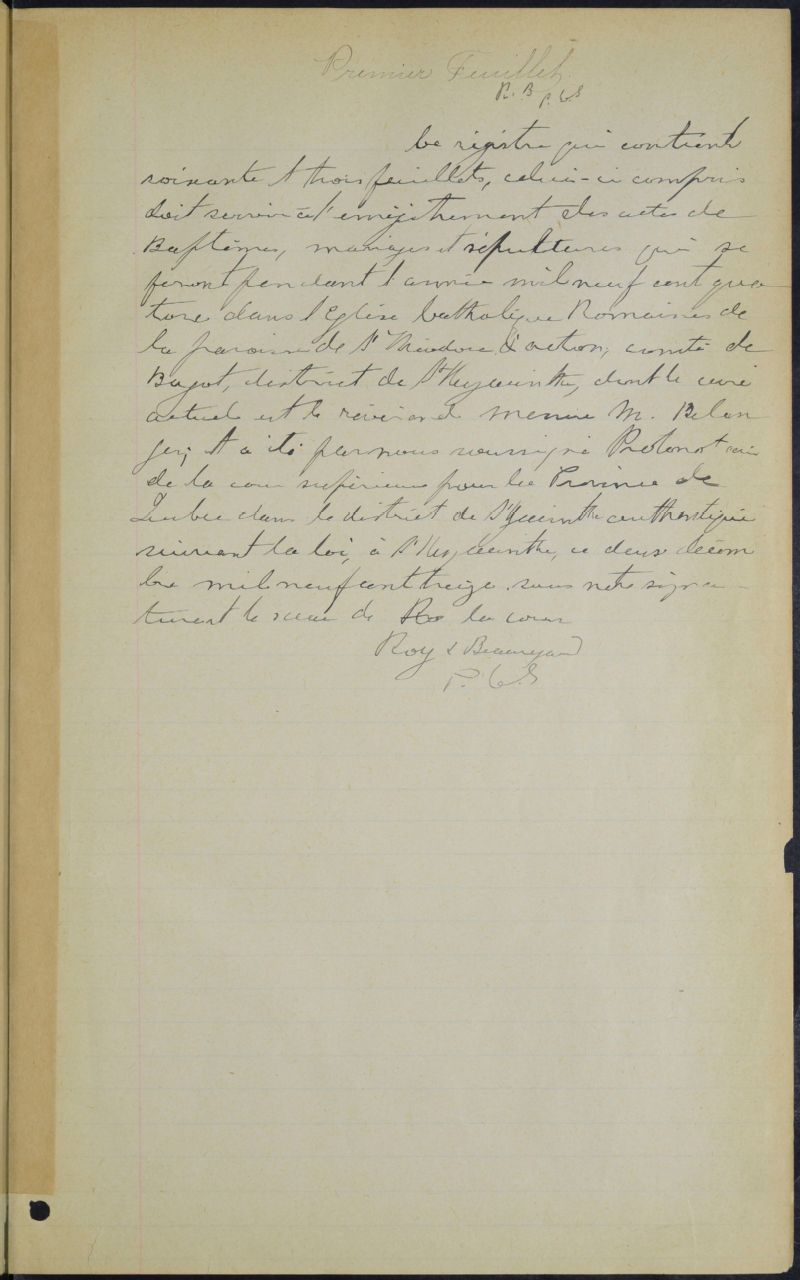 Premier Feuillet
R. B P. C. S
Ce régistre qui contient
soixante et trois feuillets, celui-ci compris
doit servir à l'enrégistrement des actes de
Baptêmes, mariages et sépultures qui se
feront pendant l'année mil neuf cent qua
torze dans l'Eglise Catholique Romaine de
la paroisse de St Théodore d'acton, comté de
Bagot, district de St Hyacinthe, dont le curé
actuel est le révérend messire M. Belan
ger, et a été par nous soussigné Protonotaire
de la cour supérieure pour la Province de
Québec dans le district de St Hyacinthe authentiqué
suivant la loi, à St Hyacinthe, ce deux décem
bre mil neuf cent treize sous notre signa-
ture et le sceau de la cour
Roy & Beauregard
P. C. S